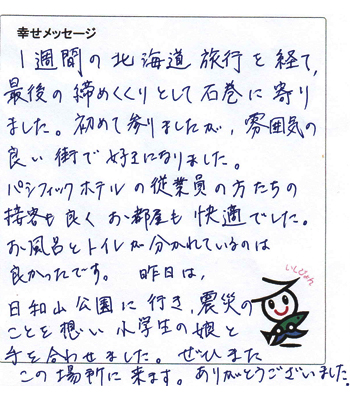 幸せメッセージ
1週間の北海道旅行を経て、
最後の締めくくりとして石巻に寄り
ました。初めて参りましたが、雰囲気の
良い街で好きになりました。
パシフィックホテルの従業員の方たちの
接客も良く お部屋も 快適でした。
お風呂とトイレが分かれているのは
良かったです。 昨日は、
いしぴょん
日和山公園に行き、震災の
ことを想い 小学生の娘と
手を合わせました。ぜひまた
この場所に来ます。ありがとうございました。